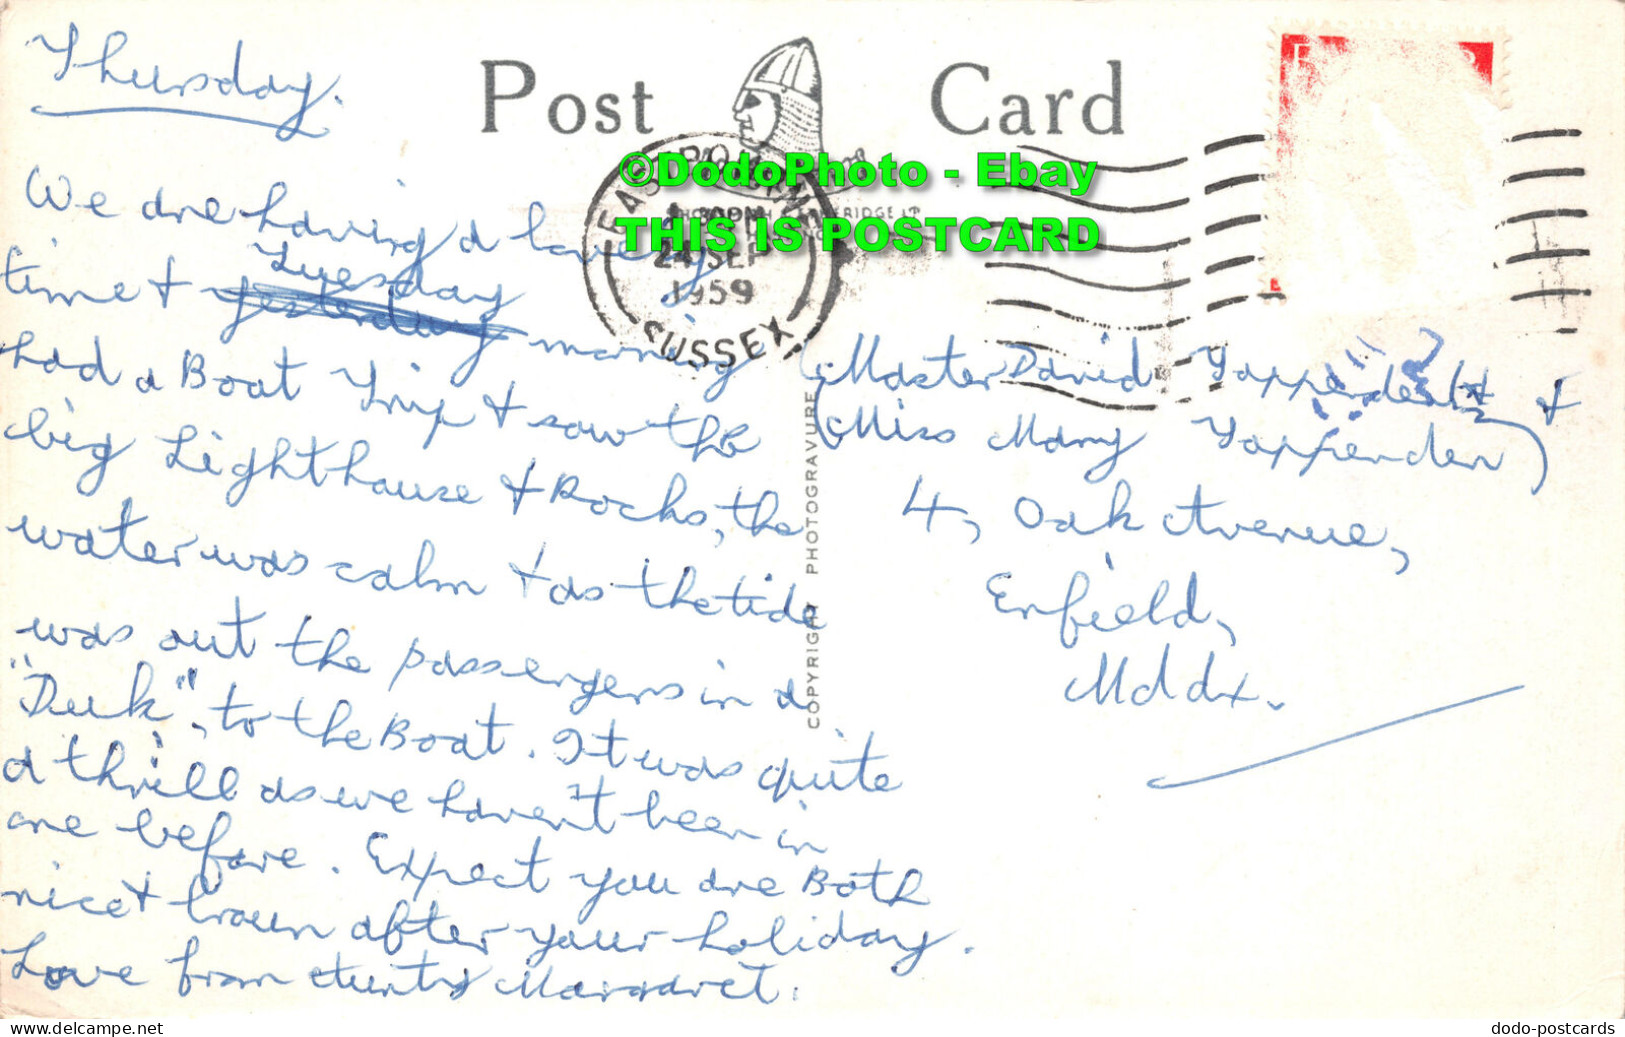 Thursday.
We are having a lovely
time & Tuesday morning
had a Boat Trip & saw the
big Lighthouse & Rocks, the
water was calm & as the tide
was out the passengers in a
"Duck", to the Boat. It was quite
a thrill as we haven't been in
one before. Expect you are Both
nice & brown after your holiday.
Love from Aunty Margaret.
Post Card
EASTBOURNE
24 SEP
1959
SUSSEX
COPYRIGHT PHOTOGRAVURE
(Master David &
(Miss Mary Toppenden)
4, Oak Avenue,
Enfield,
Mddx.
©DodoPhoto - Ebay
THIS IS POSTCARD
www.delcampe.net
dodo-postcards